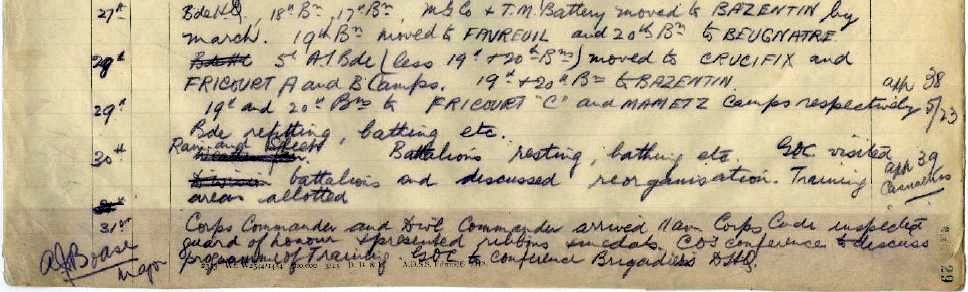 27th Bde HQ, 18th Bn, 17th Bn, M.G.Co + T.M. Battery moved to BAZENTIN by
march. 19th Bn moved to FAVREUIL and 20th Bn to BEUGNATRE.
28th 5th A.I.Bde (less 19th + 20th Bns) moved to CRUCIFIX and
FRICOURT A and B Camps. 19th + 20th Bn to BAZENTIN.
29th 19th and 20th Bns to FRICOURT "C" and MAMETZ Camps respectively
app 38
5/23
Bde refitting, bathing etc.
Rain and Sleet
30th Battalions resting, bathing etc. GOC visited
app 39
Casualties
Division battalions and discussed reorganisation. Training
areas allotted
31st Corps Commander and Divl Commander arrived 11am Corps Comdr inspected
guard of honour + presented ribbons + medals. COs conference to discuss
programme of Training GOC to conference Brigadiers DHQ.
A J Boase
Major
29